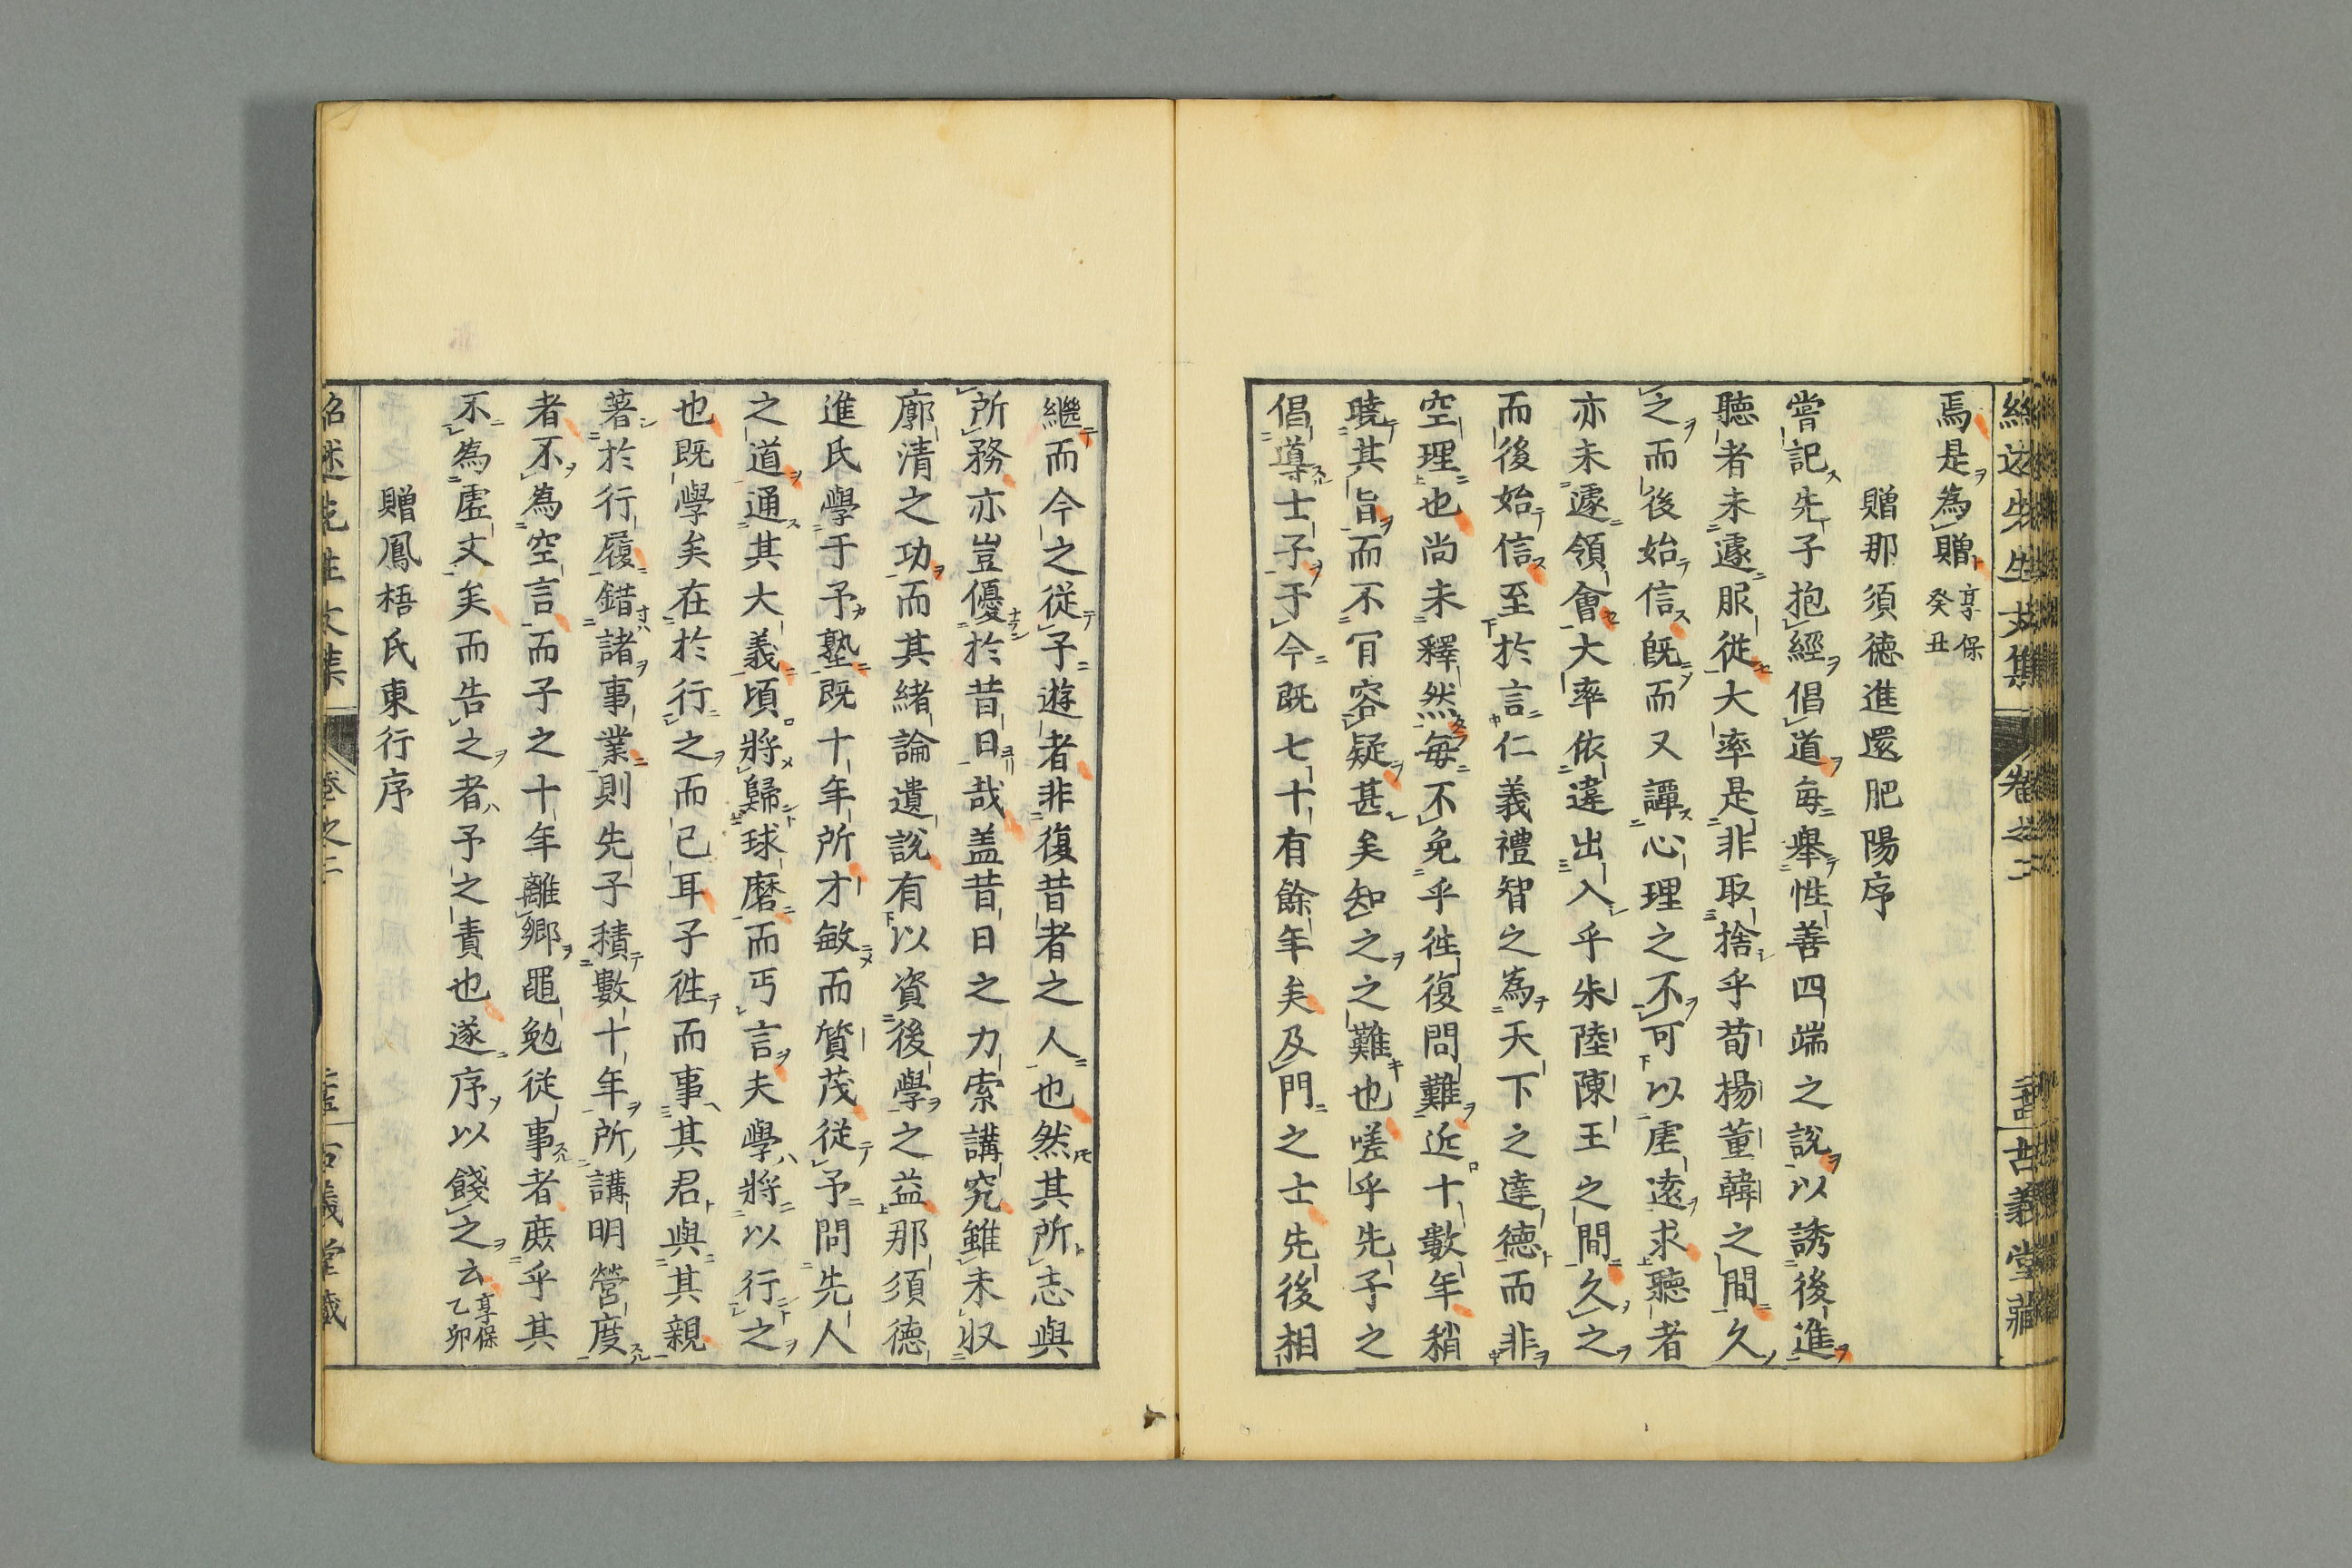 焉是為贈 享保癸丑
贈那須德進還肥陽序
嘗記先子抱經倡道每舉性善四端之說以誘後進
聽者未遽服從大率是非取捨乎荀楊董韓之間久
之而後始信既而又譚心理之不可以虛遠求聽者
亦未遽領會大率依違出入乎朱陸陳王之間久之
而後始信至於言仁義禮智之為天下之達德而非
空理也尚未釋然每不免乎徃復問難近十數年稍
曉其旨而不肎容疑甚矣知之之難也嗟乎先子之
倡導士子于今既七十有餘年矣及門之士先後相
繼而今之從子遊者非復昔者之人也然其所志與
所務亦豈優於昔日哉盖昔日之力索講究雖未収
廓清之功而其緒論遺說有以資後學之益那須德
進氏學于予塾既十年所才敏而質茂從予問先人
之道通其大義頃將歸球磨而丐言夫學將以行之
也既學矣在於行之而已耳子徃而事其君與其親
著於行履錯諸事業則先子積數十年所講明營度
者不為空言而子之十年離鄉黽勉從事者庶乎其
不為虛文矣而告之者予之責也遂序以餞之云 享保乙卯
贈鳳梧氏東行序
紹述先生文集 卷之二 古義堂藏